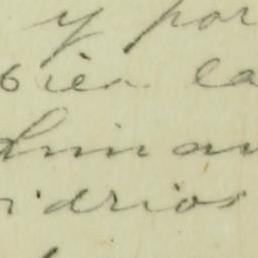 y por
bien la
idrios